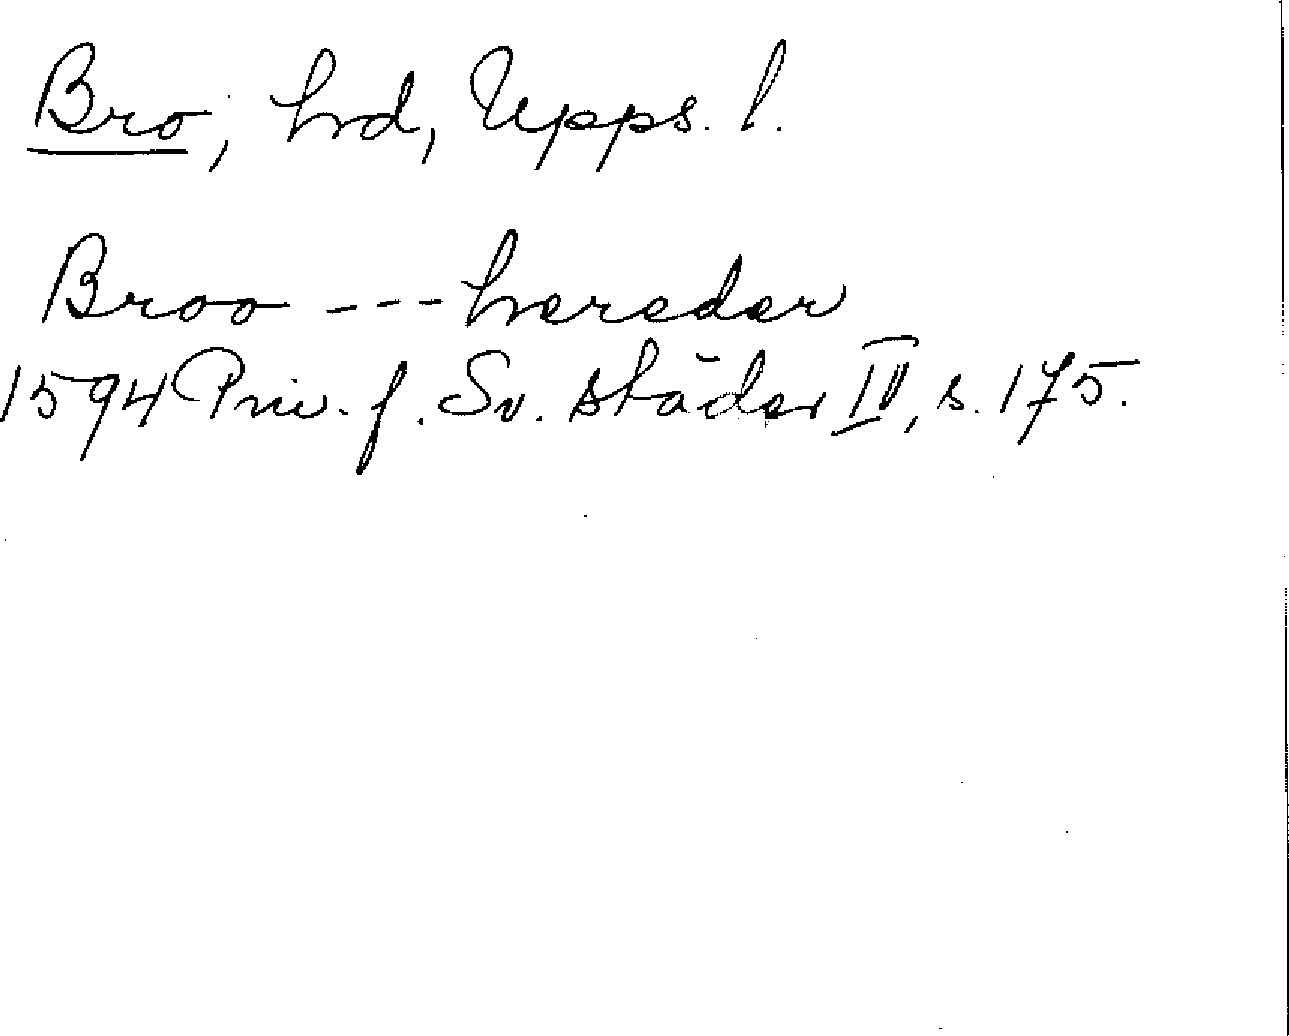 Bro, hrd, Upps. l.
Broo --- hereder
1594 Priv. f. Sv. städer IV, s. 175.